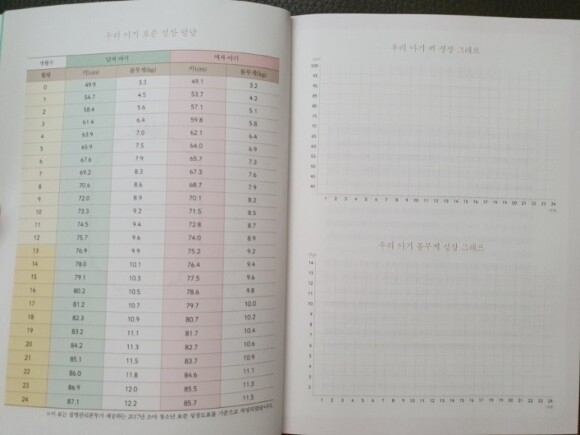 우리 아기 표준 성장 발달
개월수 남자 아기 여자 아기
월령 키(cm) 몸무게(kg) 키(cm) 몸무게(kg)
0 49.9 3.3 49.1 3.2
1 54.7 4.5 53.7 4.2
2 58.4 5.6 57.1 5.1
3 61.4 6.4 59.8 5.8
4 63.9 7.0 62.1 6.4
5 65.9 7.5 64.0 6.9
6 67.6 7.9 65.7 7.3
7 69.2 8.3 67.3 7.6
8 70.6 8.6 68.7 7.9
9 72.0 8.9 70.1 8.2
10 73.3 9.2 71.5 8.5
11 74.5 9.4 72.8 8.7
12 75.7 9.6 74.0 8.9
13 76.9 9.9 75.2 9.2
14 78.0 10.1 76.4 9.4
15 79.1 10.3 77.5 9.6
16 80.2 10.5 78.6 9.8
17 81.2 10.7 79.7 10.0
18 82.3 10.9 80.7 10.2
19 83.2 11.1 81.7 10.4
20 84.2 11.3 82.7 10.6
21 85.1 11.5 83.7 10.9
22 86.0 11.8 84.6 11.1
23 86.9 12.0 85.5 11.3
24 87.1 12.2 85.7 11.5
※이 표는 질병관리본부가 제공하는 2017년 소아 청소년 표준 성장도표를 기준으로 작성되었습니다.
우리 아기 키 성장 그래프
100
95
90
85
80
75
70
65
60
55
50
45
40
1 2 3 4 5 6 7 8 9 10 11 12 13 14 15 16 17 18 19 20 21 22 23 24
우리 아기 몸무게 성장 그래프
14
13
12
11
10
9
8
7
6
5
4
3
2
1 2 3 4 5 6 7 8 9 10 11 12 13 14 15 16 17 18 19 20 21 22 23 24